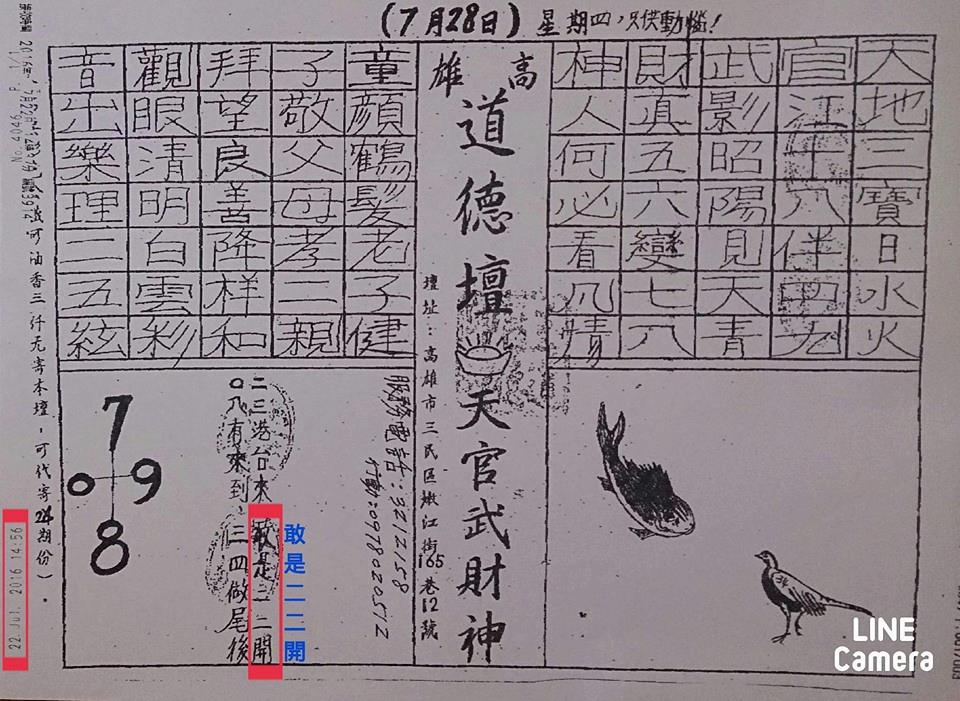 (7月28日) 星期四，只供動惱！
天地三寶日水火
官江十八伴四九
武影昭陽見天青
財真五六變七八
神人何必看凡情
高雄
道德壇天官武財神
壇址：高雄市三民區嫩江街165巷12號
服務電話：3212158
行動：0978020512
童顏鶴髮老子健
子敬父母孝二親
拜望良善降样和
觀眼清明白雲彩
音出樂理二五絃
二三港台來敢是二三開
○八有來到，三四做尾後
敢是二二開
7
0 9
8
油香三仟元寄本壇，可代寄24期份）．
No.4046 P. 1/1
22.Jul. 2016 14:56
LINE
Camera